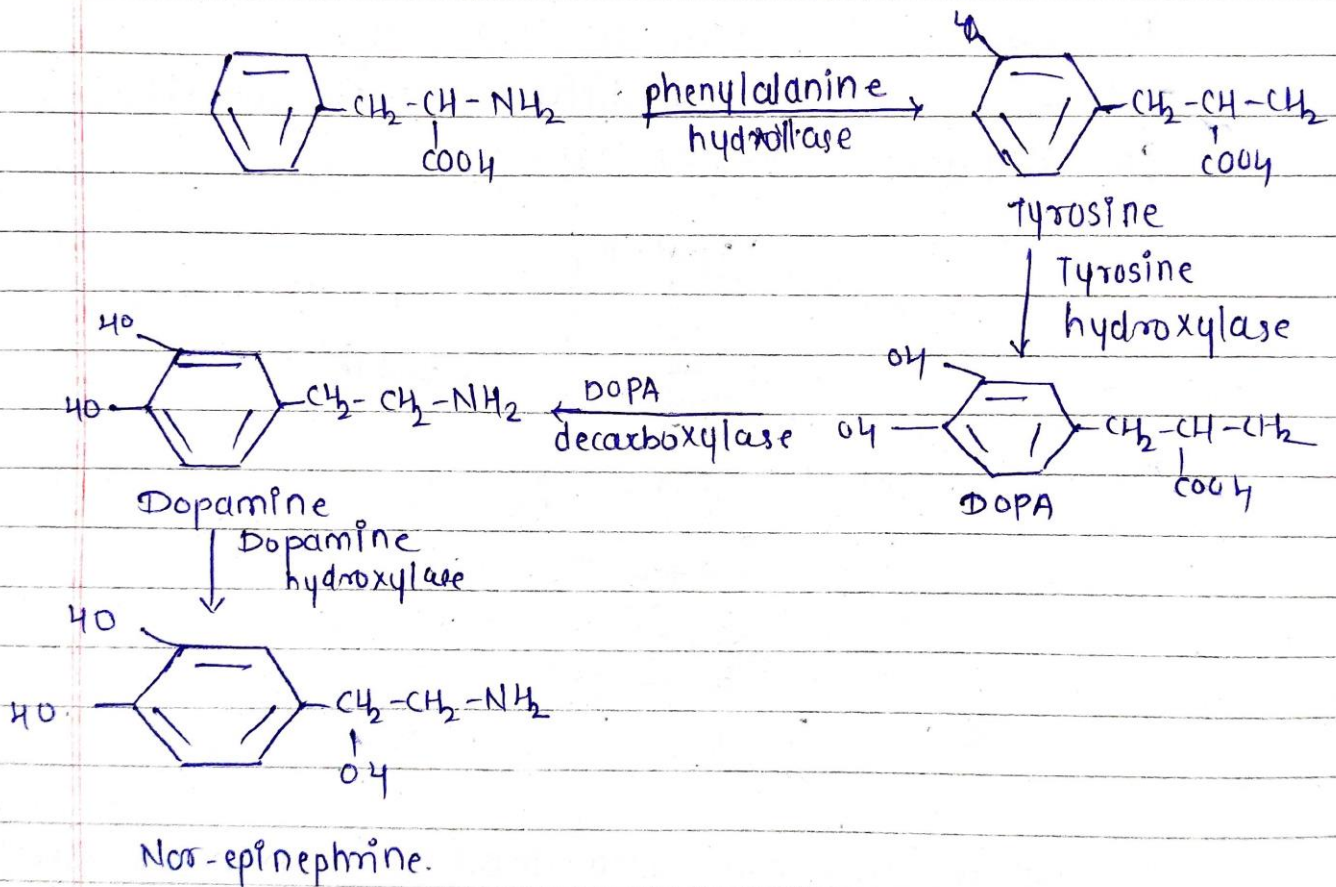 CH2-CH-NH2
COOH
phenylalanine
hydrollase
HO
CH2-CH-CH2
COOH
Tyrosine
Tyrosine
hydroxylase
OH
OH
CH2-CH-CH2
COOH
DOPA
DOPA
decarboxylase
HO
HO
CH2-CH2-NH2
Dopamine
Dopamine
hydroxylase
HO
HO
CH2-CH2-NH2
OH
Nor-epinephrine.